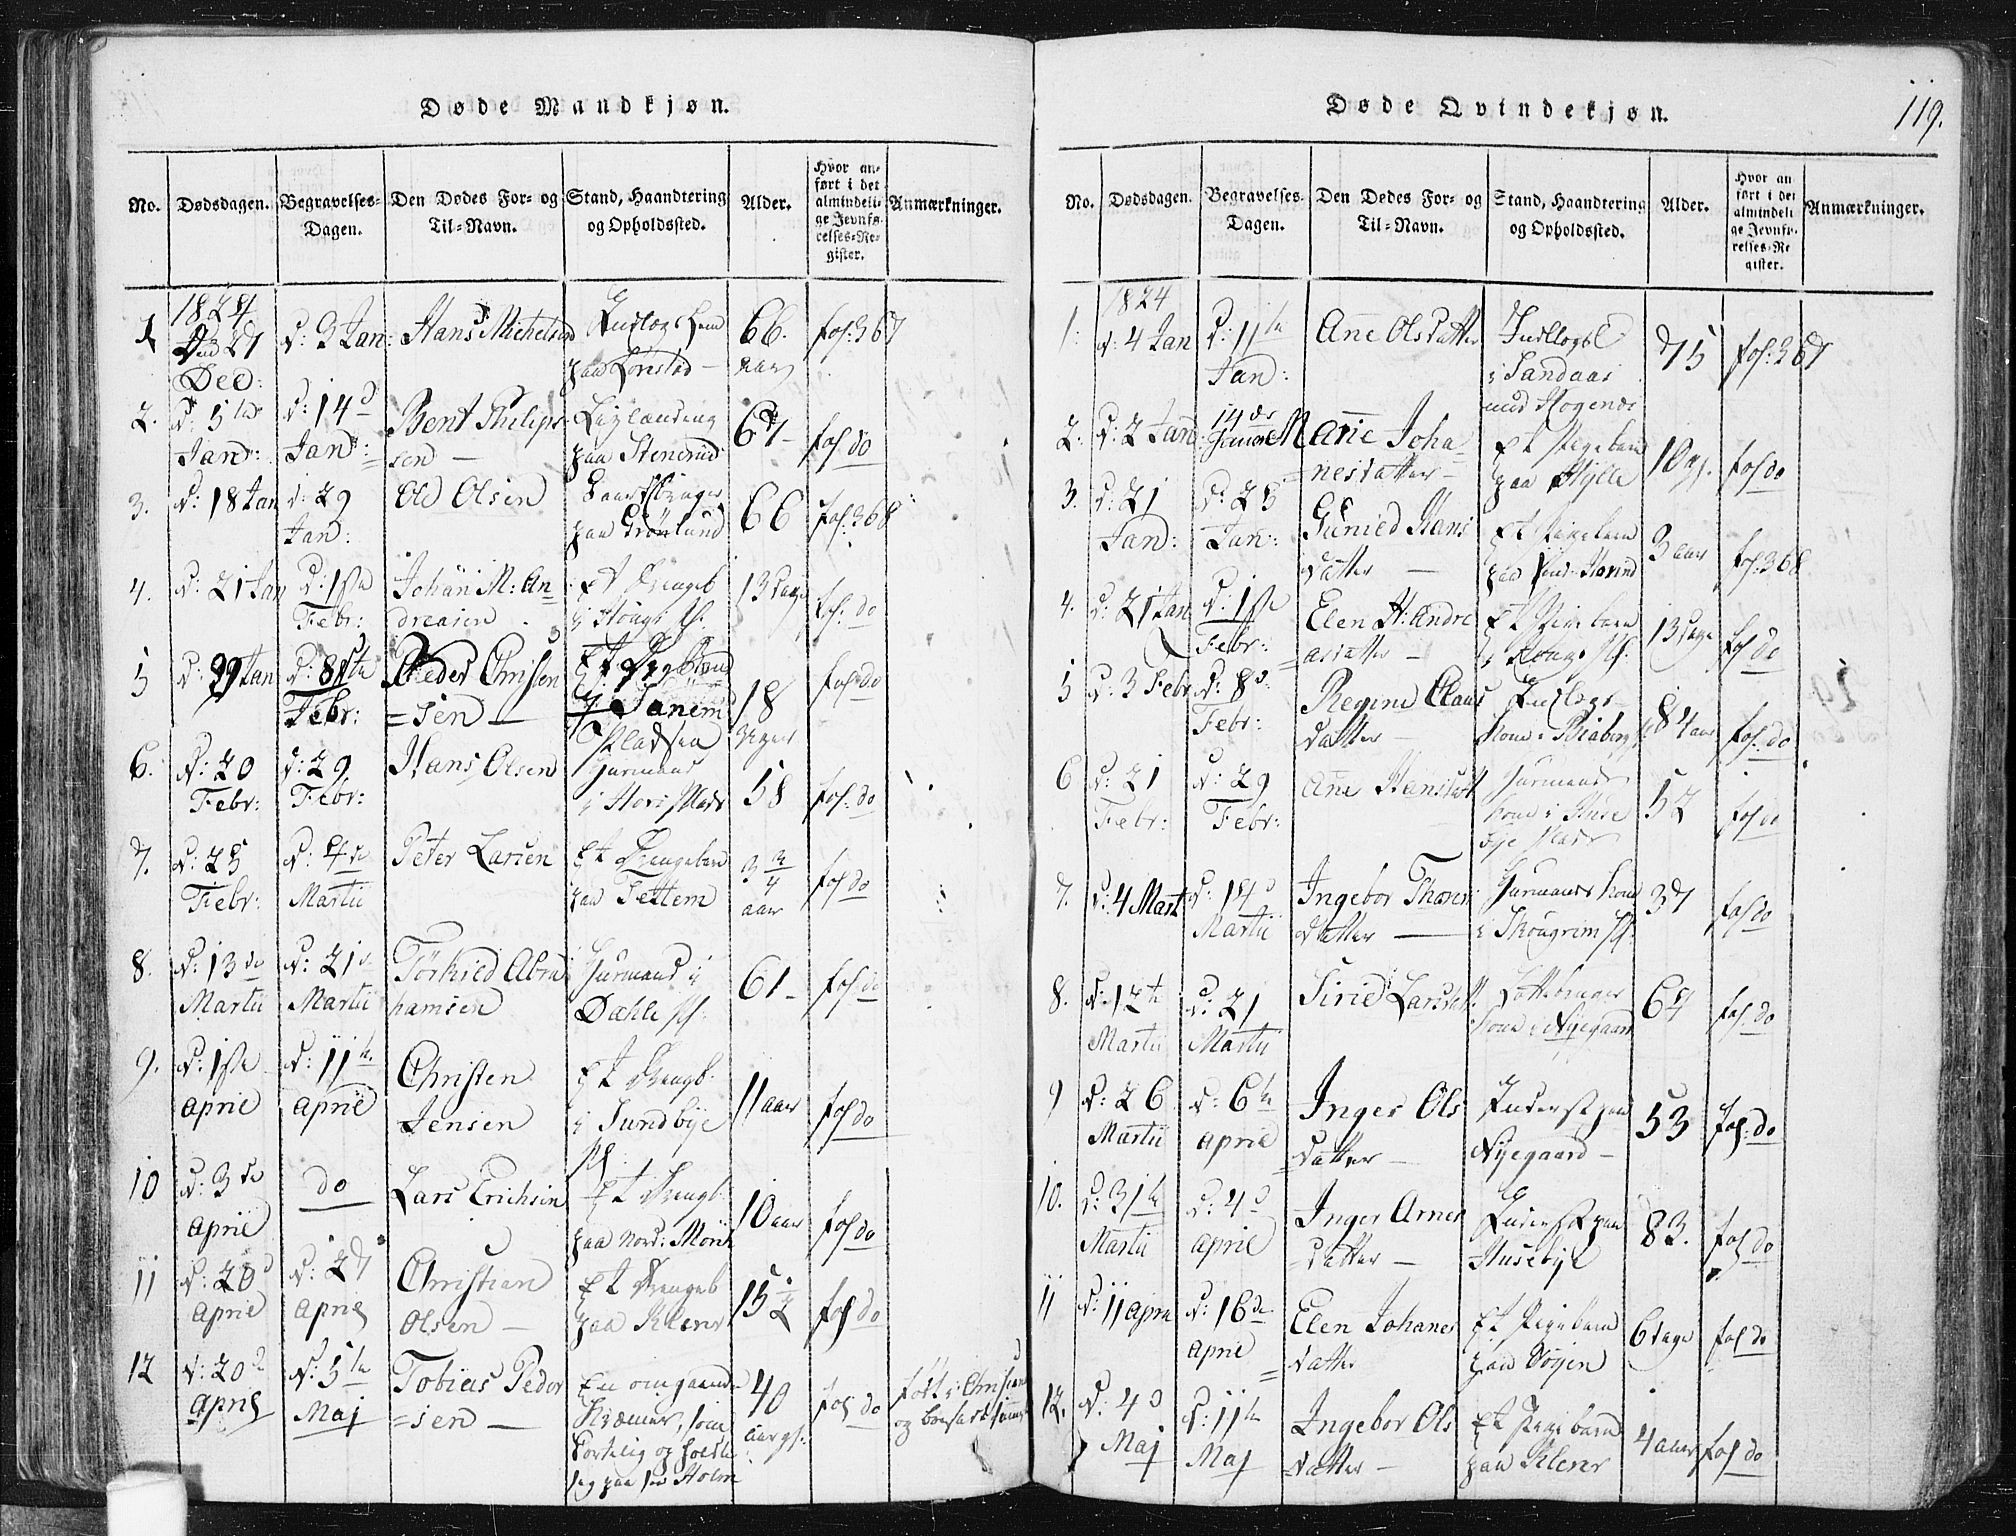 Døde Mandkjøn.
No.
Dødsdagen.
Begravelses-
Dagen.
Den Dødes For- og
Til-Navn.
Stand, Haandtering
og Opholdssted.
Alder.
Hvor an-
ført i det
almindeli-
ge Jevnfø-
relses-Re-
gister.
Anmærkninger.
1824
1
27
Dec:
d: 3 Jan:
Hans Michelsen
paa
66.
aar
fol: 367
2.
d: 5te
Jan:
d: 14d
Jan:
Bent Philip-
sen —
paa Stenerud
67-
fol do
3.
d: 18 Jan
d: 29
Jan:
Ole Olsen
Gaardbruger
paa Grönlund
66
fol: 368
4.
d: 21 Jan
d: 1ste
Febr:
Johan M: An-
dreasen
Et Drengeb
13 Dage
fol: do
5
Jan
d: 8de
Febr:
Peder Christen
=sen —
Pladsen
18
Uger
fol: do
6.
d: 20
Febr:
d: 29
Febr:
Hans Olsen
Huusmand
58
fol: do
7.
d: 25
Febr:
d: 4de
Martii
Peter Larsen
Et Drengebarn
paa Tettem
3 3/4
aar
fol do
8.
d: 13de
Martii
d: 21d
Martii
Törkied Abra
hamsen
Huusmand i
Dæhle pl:
61-
fol: do
9.
d: 1ste
April
d: 11te
April
Christen
Jensen
Et Drengb.
i Sundbye
pl:
11 aar
fol do
10
d: 3de
April
do
Lars Erichsen
Et Drengb.
paa Nord: Mörk
10 aar
fol do
11
d: 20d
April
d: 27
April
Christian
Olsen —
Et Drengeb
paa Klever
15 1/2
fol do
12
d: 20d
April
d: 5te
Maj
Tobias Peder
=sen —
En omgaaende
Kræmer, som
og
sig paa Holm
40
aar gl:
fol do
født i Christian
og
Døde Qvindekjøn.
119.
No.
Dødsdagen.
Begravelses-
Dagen.
Den Dødes For- og
Til-Navn.
Stand, Haandtering
og Opholdssted.
Alder.
Hvor an
ført i det
almindeli
ge Jevnfø-
relses-Re
gister.
Anmærkninger.
1824
1.
d: 4 Jan
d: 11te
Jan:
Ane Olsdatter
i Sandaas
75
fol: 367
2.
d: 2 Jan
14de
Januar
Marie Joha
=nesdatter —
Et Pigebarn
paa Hylle
10
fol do
3.
d: 21
Jan:
d: 25
Jan:
Gunild Hans
datter —
Et Pigebarn
paa
3 aar
fol: 368
4.
d: 21 Jan
d: 1ste
Febr:
Elen H: Andre
=asdatter —
Et Pigebarn
13 Dage
fol do
5
d: 3 Febr
d: 8d:
Febr:
Regine Claus
datter —
84 aar
fol: do
6
d: 21
Febr:
d: 29
Febr:
Ane Hansdatt
Huusmands
kone i
52
fol do
7.
d: 4 Mart
d: 14d
Martii
Ingebor Thores
datter —
Huusmands kone
i Skougrim pl:
37
fol do
8.
d: 12te
Martii
d: 21
Martii
Sirie Larsdatt.
kone i Nyegaard
67
fol do
9
d: 26
Martii
d: 6te
April
Inger Ols
=datter —
Inderst paa
Nyegaard —
53
fol: do
10.
d: 31te
Martii
d: 4d
April
Inger Arnes
datter —
Inderst paa
Husebye
83.
fol do
11
d: 11 Apri
d: 16de
April
Elen Johanes
=datter
Et Pigebarn
paa Döjen
6 Dage
fol do
12.
d: 4d
Maj
d: 11te
Maj
Ingebor Ols
=datter —
Et Pigebarn
paa Klever
4 aar
fol do